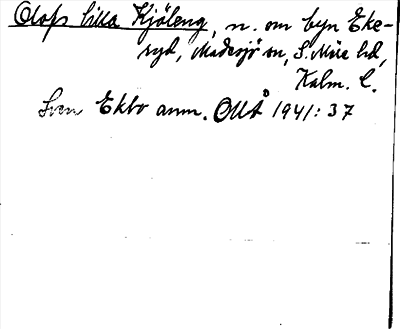 Olofs lilla Kjöleng, n. om byn Eke-
ryd, Madesjö sn, S. Möre hd,
Kalm. l.
Sven Ekbo anm. OUÅ 1941:37